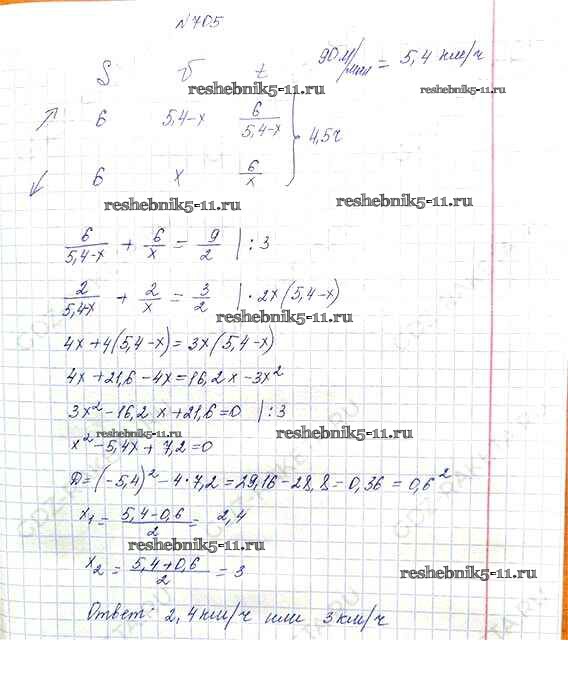 №705
90 м/мин = 5,4 км/ч
S v t
reshebnik5-11.ru reshebnik5-11.ru
↗ 6 5,4-x 6/(5,4-x)
} 4,5ч
↙ 6 x 6/x
reshebnik5-11.ru reshebnik5-11.ru
6/(5,4-x) + 6/x = 9/2 | :3
2/(5,4-x) + 2/x = 3/2 | ·2x(5,4-x)
reshebnik5-11.ru
4x+4(5,4-x)=3x(5,4-x)
4x+21,6-4x=16,2x-3x²
3x²-16,2x+21,6=0 |:3
reshebnik5-11.ru reshebnik5-11.ru
x²-5,4x+7,2=0
D=(-5,4)²-4·7,2=29,16-28,8=0,36=0,6²
x₁=(5,4-0,6)/2=2,4
reshebnik5-11.ru
x₂=(5,4+0,6)/2=3
reshebnik5-11.ru
Ответ: 2,4км/ч или 3км/ч